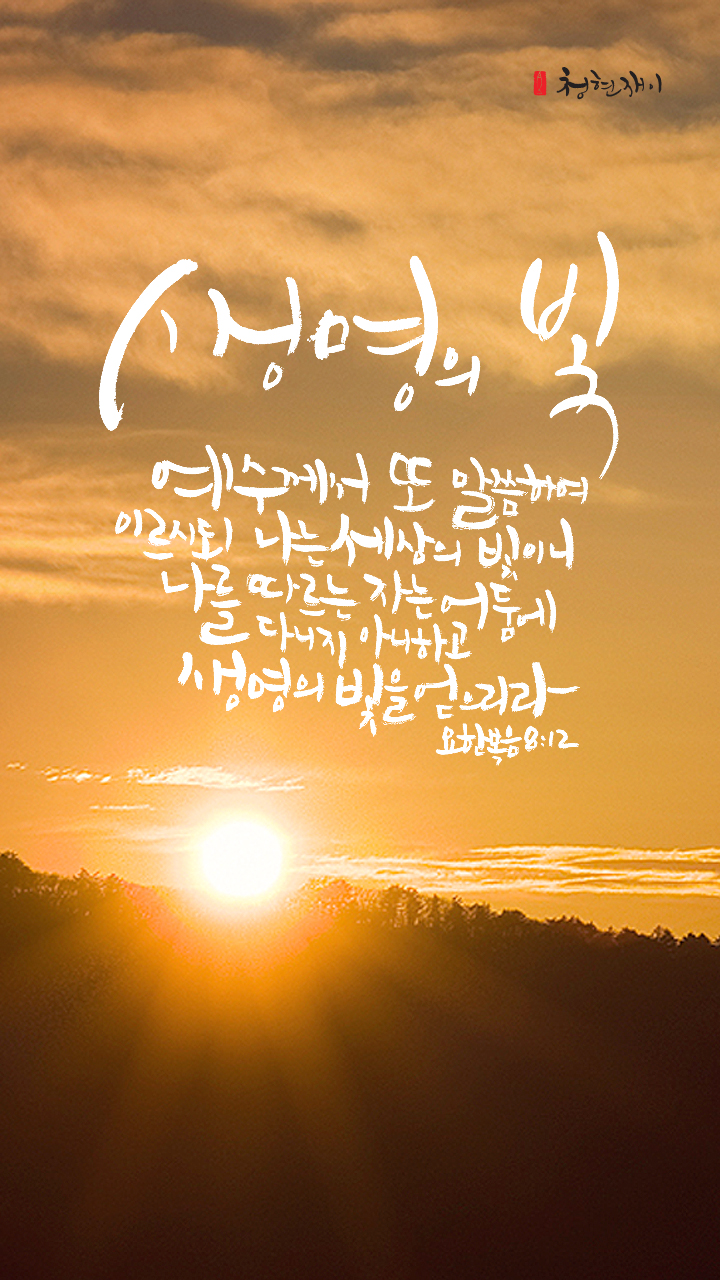 청현재이
생명의 빛
예수께서 또 말씀하여
이르시되 나는 세상의 빛이니
나를 따르는 자는 어둠에
다니지 아니하고
생명의 빛을 얻으리라
요한복음 8:12